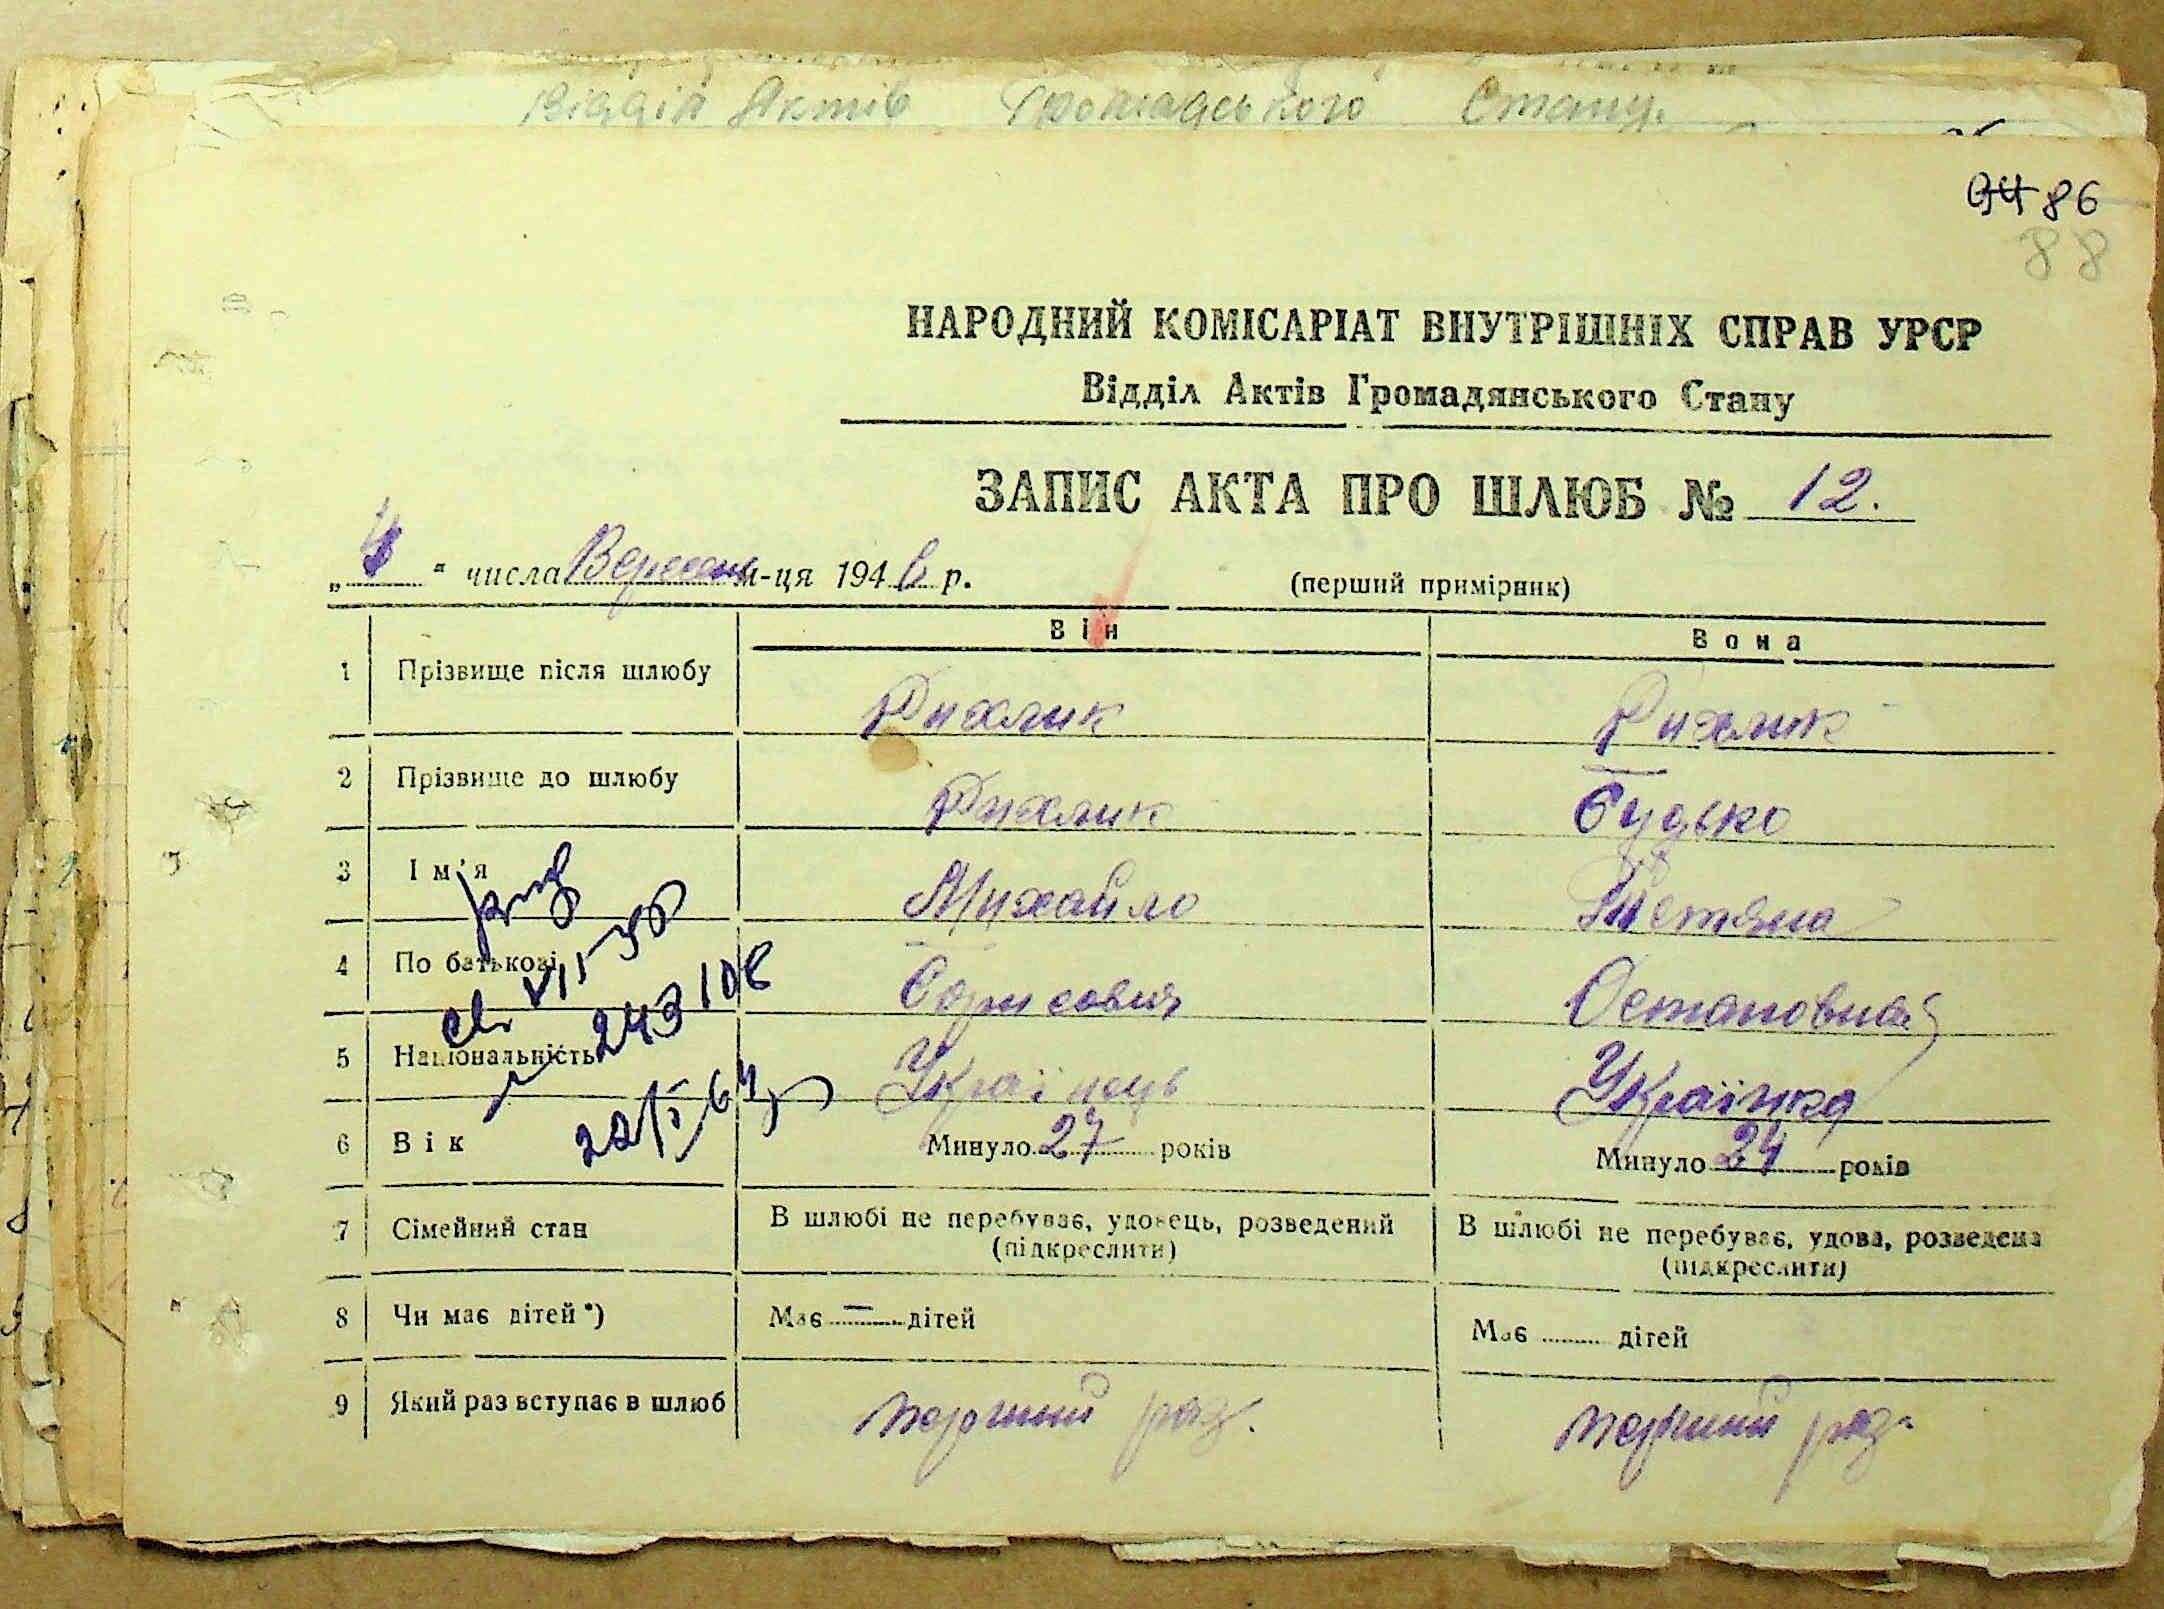 Відділ Актів Громадського Стану.
94 86
88
НАРОДНИЙ КОМІСАРІАТ ВНУТРІШНІХ СПРАВ УРСР
Відділ Актів Громадянського Стану
ЗАПИС АКТА ПРО ШЛЮБ № 12.
„4“ числа Вересень м-ця 1946 р. (перший примірник)
Він Вона
1 Прізвище після шлюбу Рихлик Рихлик
2 Прізвище до шлюбу Рихлик Будько
3 Ім'я Михайло Тетяна
4 По батькові Борисович Остаповна
VII-
243108
5 Національність Українець Українка
22/I 64
6 Вік Минуло 27 років Минуло 24 років
7 Сімейний стан В шлюбі не перебуває, удовець, розведений В шлюбі не перебуває, удова, розведена
(підкреслити) (підкреслити)
8 Чи має дітей*) Має — дітей Має дітей
9 Який раз вступає в шлюб перший раз. перший раз.